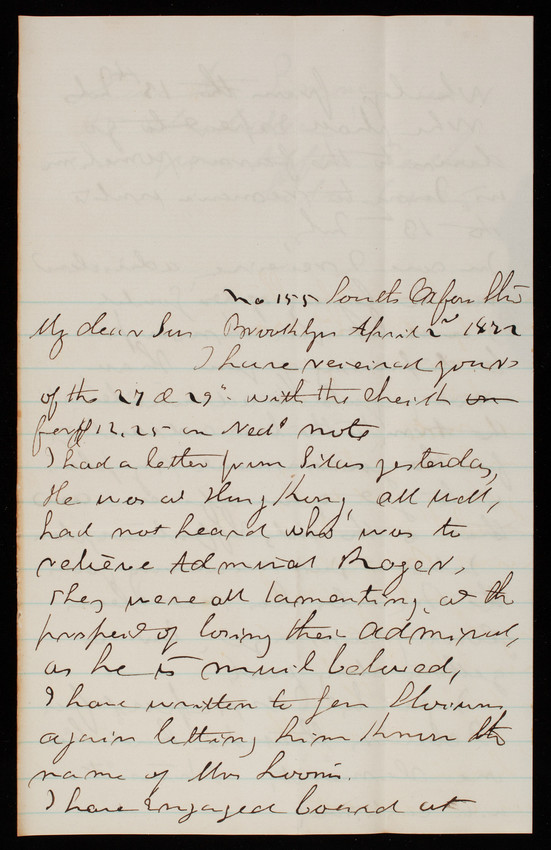 No 155 South Oxfor Str
My dear Sir Brooklyn April 2nd 1872
I have received yours
of the 27 & 29th with the check
for $12.25 on Neds note
I had a letter from Silas yesterday,
He was at Hong Kong, all well,
had not heard who was to
relieve Admiral Roger,
They were all lamenting, at the
prospect of losing their Admiral,
as he is much beloved,
I have written to Gen
again letting him know the
name of Mrs Loomis.
I have engaged board at